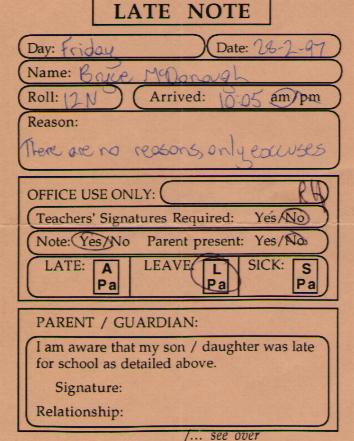 LATE NOTE
Day: Friday Date: 28-2-97
Name: Bryce McDonough
Roll: 12N Arrived: 10:05 am/pm
Reason:
There are no reasons, only excuses
OFFICE USE ONLY: RH
Teachers' Signatures Required: Yes/No
Note: Yes/No Parent present: Yes/No
LATE: A Pa LEAVE: L Pa SICK: S Pa
PARENT / GUARDIAN:
I am aware that my son / daughter was late
for school as detailed above.
Signature:
Relationship:
/... see over